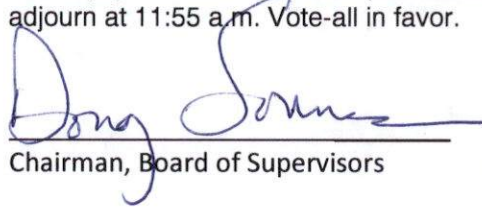 adjourn at 11:55 a.m. Vote-all in favor.
Doug
Chairman, Board of Supervisors